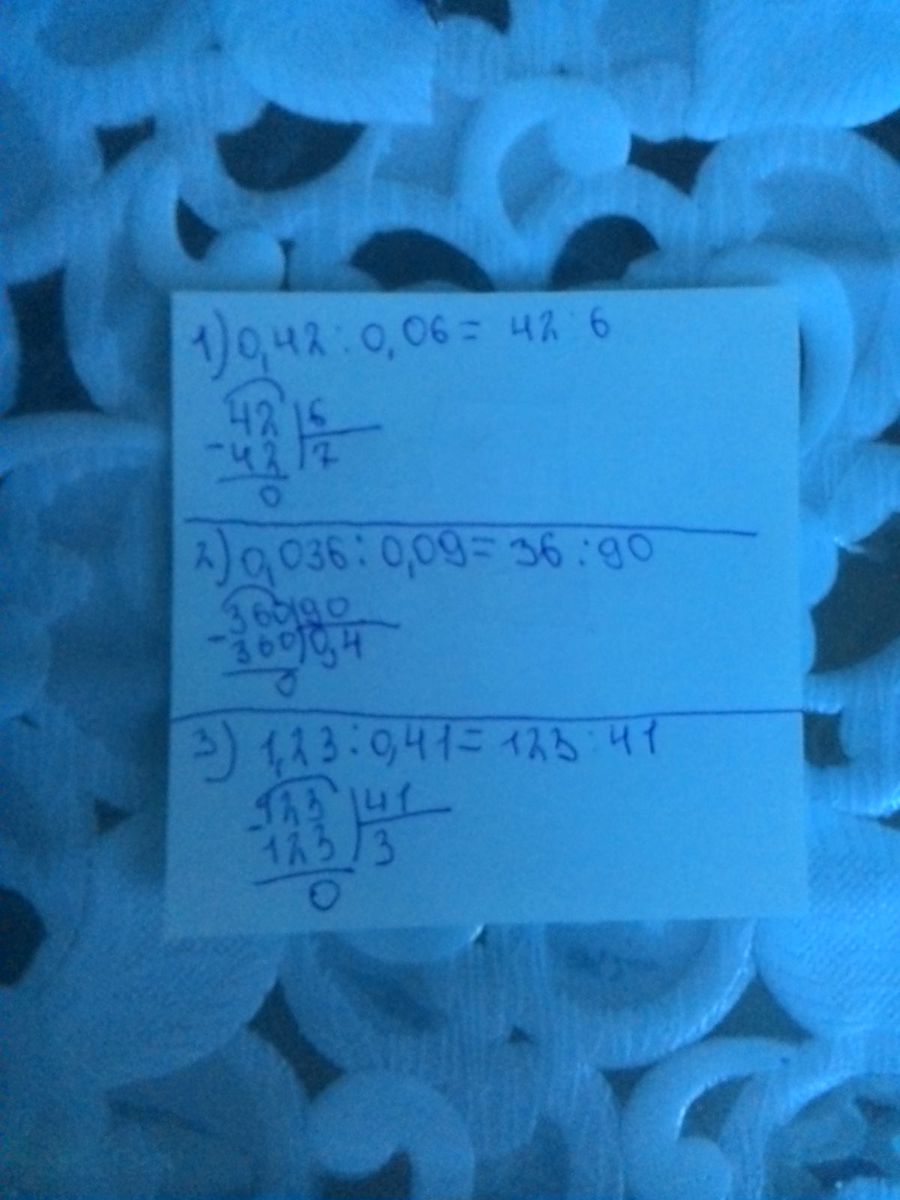 1) 0,42 : 0,06 = 42 : 6
42 | 6
- 42 | 7
0
2) 0,036 : 0,09 = 36 : 90
360 | 90
- 360 | 0,4
0
3) 1,23 : 0,41 = 123 : 41
123 | 41
- 123 | 3
0